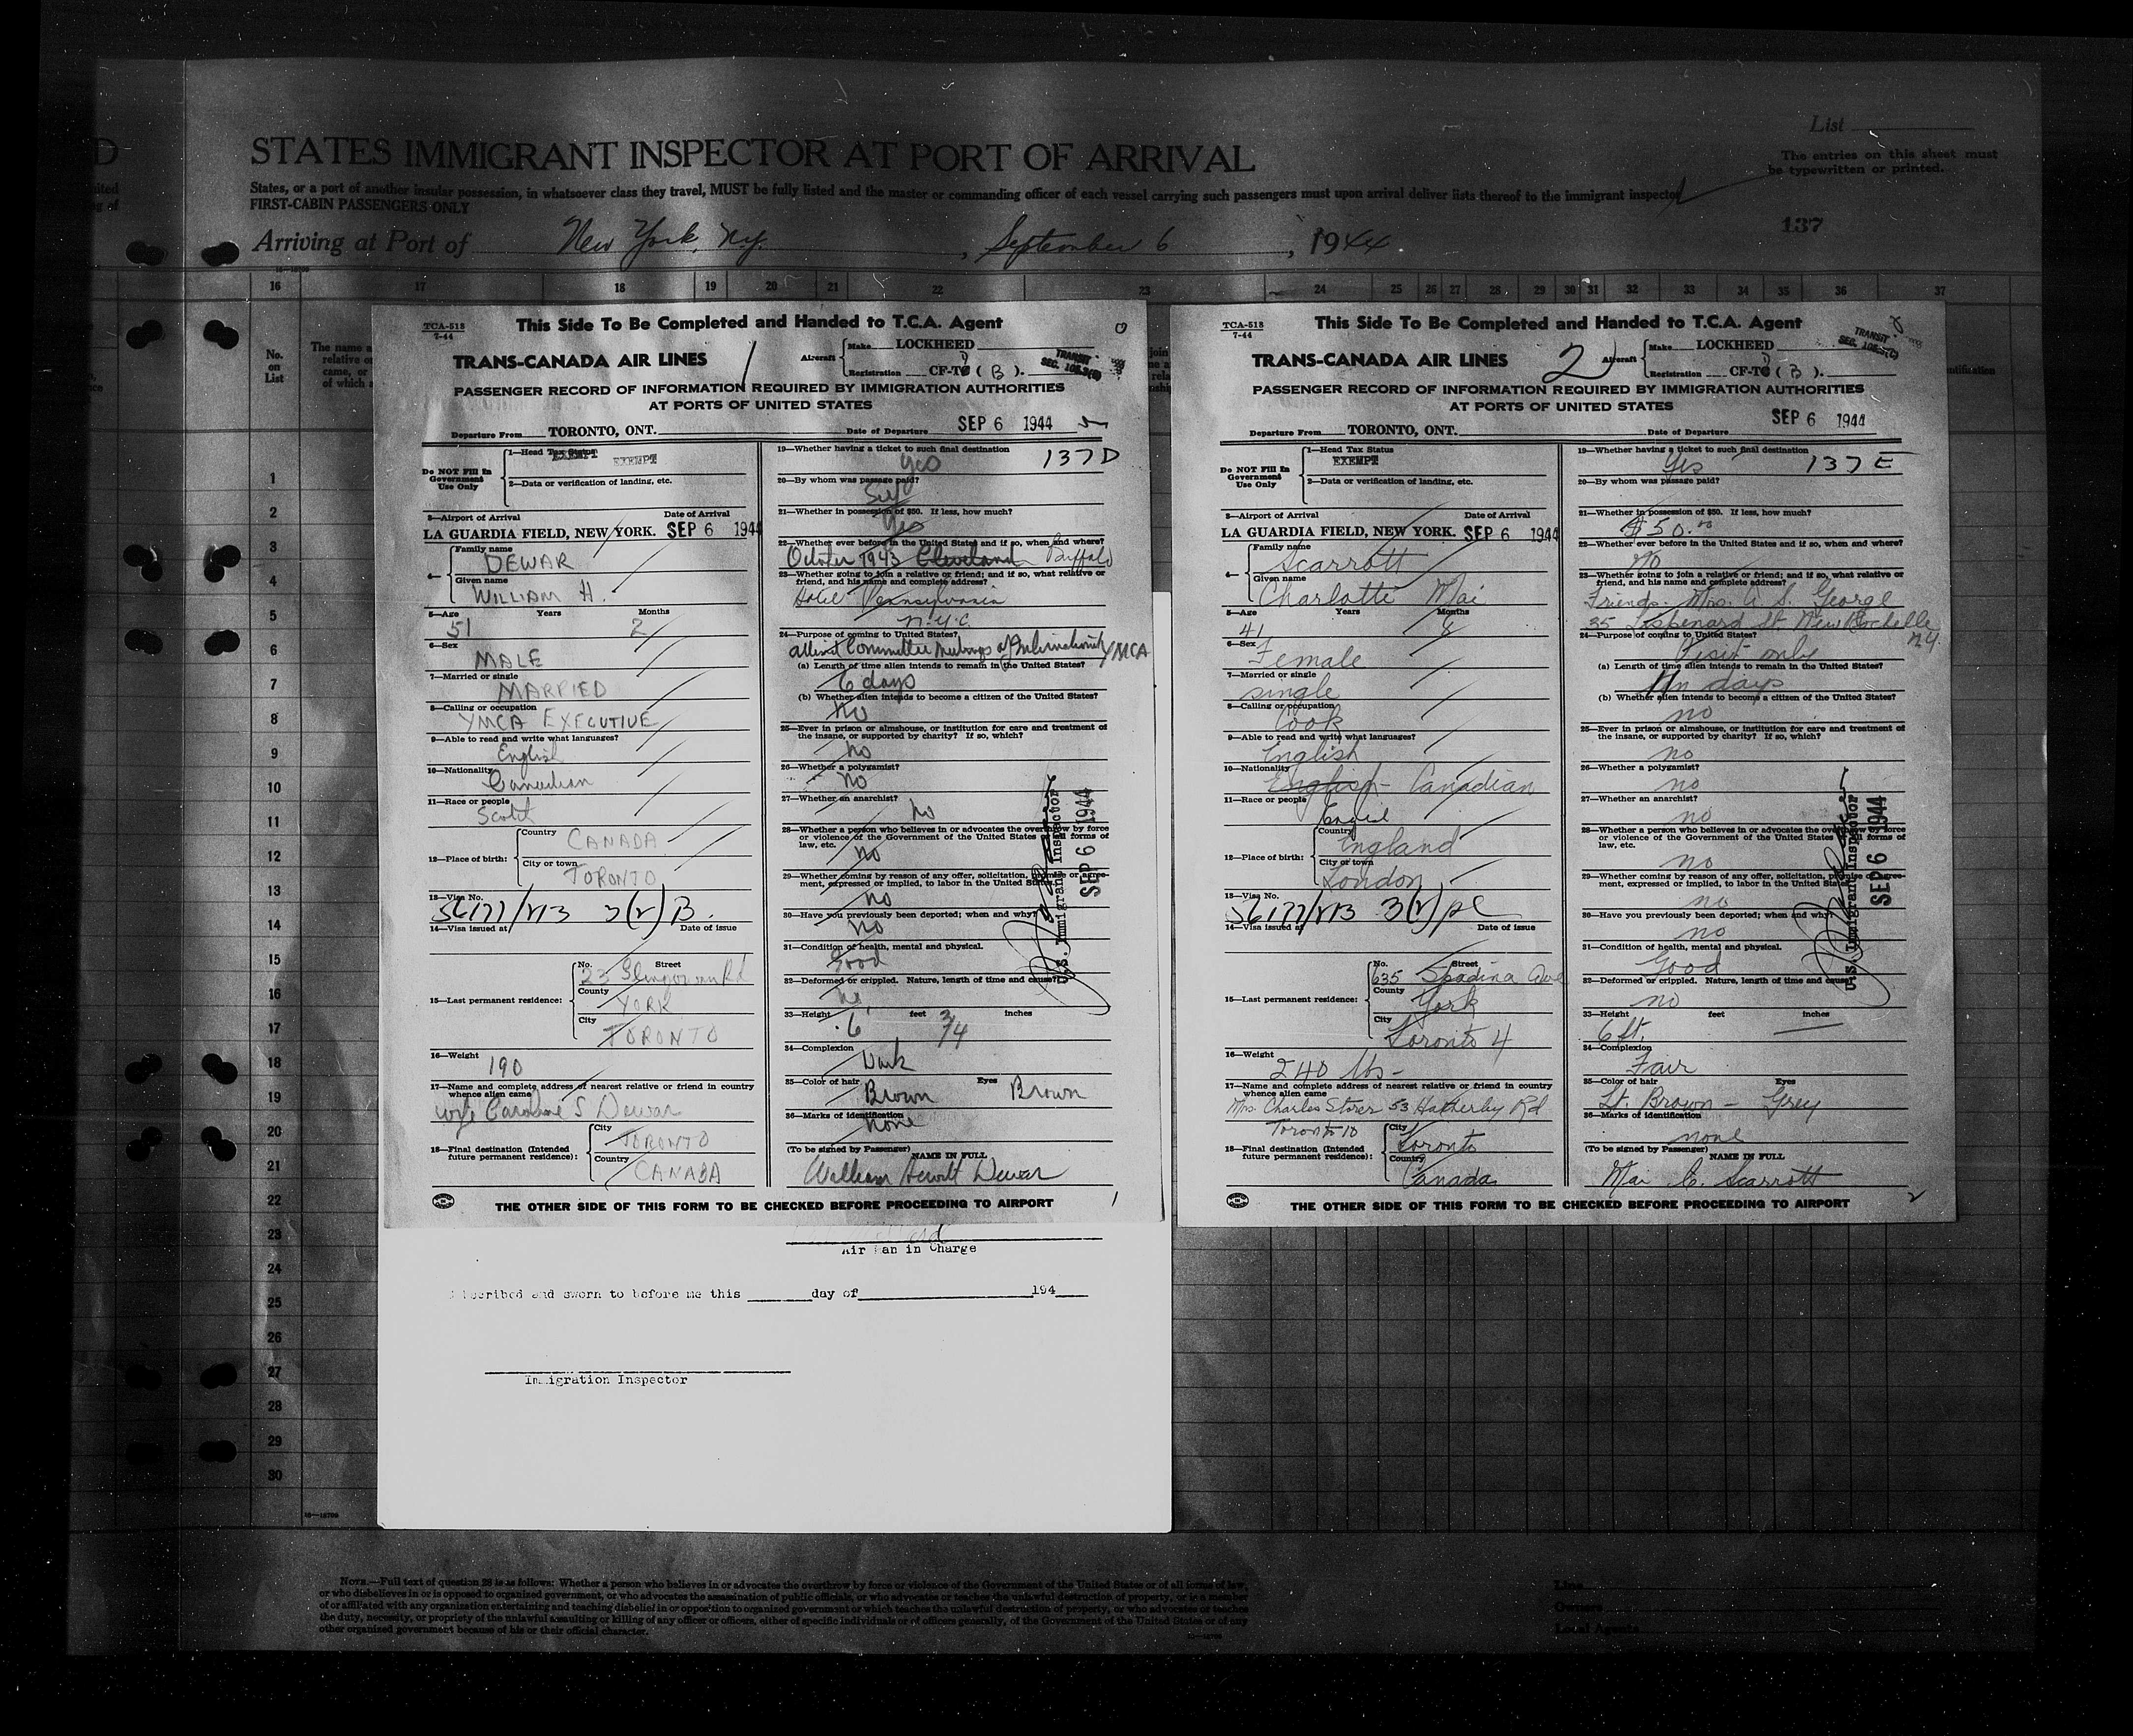 List
The entries on this sheet must
be typewritten or printed.
STATES IMMIGRANT INSPECTOR AT PORT OF ARRIVAL
States, or a port of another insular possession, in whatsoever class they travel, MUST be fully listed and the master or commanding officer of each vessel carrying such passengers must upon arrival deliver lists thereof to the immigrant inspector
FIRST-CABIN PASSENGERS ONLY
137
Arriving at Port of New York, N.Y. , September 6 , 1944
16 17 18 19 20 21 22 23 24 25 26 27 28 29 30 31 32 33 34 35 36 37
No.
on
List
1
2
3
4
5
6
7
8
9
10
11
12
13
14
15
16
17
18
19
20
21
22
23
24
25
26
27
28
29
30
TCA-518
7-44
This Side To Be Completed and Handed to T.C.A. Agent
TRANS-CANADA AIR LINES 1
Aircraft Make LOCKHEED
Registration CF-TC ( B ).
PASSENGER RECORD OF INFORMATION REQUIRED BY IMMIGRATION AUTHORITIES
AT PORTS OF UNITED STATES
Departure From TORONTO, ONT. Date of Departure SEP 6 1944
Do NOT Fill In
Government
Use Only
1—Head Tax Status EXEMPT EXEMPT
2—Data or verification of landing, etc.
3—Airport of Arrival Date of Arrival
LA GUARDIA FIELD, NEW YORK. SEP 6 1944
4— Family name DEWAR
Given name WILLIAM H.
5—Age Years Months
51 2
6—Sex
MALE
7—Married or single
MARRIED
8—Calling or occupation
YMCA EXECUTIVE
9—Able to read and write what languages?
English
10—Nationality
Canadian
11—Race or people
Scotch
12—Place of birth: Country CANADA
City or town TORONTO
13—Visa No.
56177/213 3(2) B.
14—Visa issued at Date of issue
15—Last permanent residence: No. Street
23 Glengowan Rd
County YORK
City TORONTO
16—Weight
190
17—Name and complete address of nearest relative or friend in country
whence alien came
wife Caroline S Dewar
18—Final destination (Intended
future permanent residence): City TORONTO
Country CANADA
19—Whether having a ticket to such final destination
yes 137D
20—By whom was passage paid?
Self
21—Whether in possession of $50. If less, how much?
Yes
22—Whether ever before in the United States and if so, when and where?
October 1943 Cleveland Buffalo
23—Whether going to join a relative or friend; and if so, what relative or
friend, and his name and complete address?
Hotel Pennsylvania
N.Y.C
24—Purpose of coming to United States?
attend Committee Meetings of International YMCA
(a) Length of time alien intends to remain in the United States?
6 days
(b) Whether alien intends to become a citizen of the United States?
No
25—Ever in prison or almshouse, or institution for care and treatment of
the insane, or supported by charity? If so, which?
No
26—Whether a polygamist?
No
27—Whether an anarchist?
No
28—Whether a person who believes in or advocates the overthrow by force
or violence of the Government of the United States or all forms of
law, etc.
no
29—Whether coming by reason of any offer, solicitation, promise or agree-
ment, expressed or implied, to labor in the United States
no
30—Have you previously been deported; when and why?
no
31—Condition of health, mental and physical.
Good
32—Deformed or crippled. Nature, length of time and cause?
no
33—Height feet inches
6
34—Complexion
Dark
35—Color of hair Eyes
Brown Brown
36—Marks of identification
none
(To be signed by Passenger) NAME IN FULL
William Hewitt Dewar
U.S. Immigrant Inspector
SEP 6 1944
THE OTHER SIDE OF THIS FORM TO BE CHECKED BEFORE PROCEEDING TO AIRPORT
1
Air Man in Charge
scribed and sworn to before me this ____ day of ____ 194__
Immigration Inspector
TCA-518
7-44
This Side To Be Completed and Handed to T.C.A. Agent
TRANS-CANADA AIR LINES 2
Aircraft Make LOCKHEED
Registration CF-TC ( B ).
TRANSIT
PASSENGER RECORD OF INFORMATION REQUIRED BY IMMIGRATION AUTHORITIES
AT PORTS OF UNITED STATES
Departure From TORONTO, ONT. Date of Departure SEP 6 1944
Do NOT Fill In
Government
Use Only
1—Head Tax Status
EXEMPT
2—Data or verification of landing, etc.
3—Airport of Arrival Date of Arrival
LA GUARDIA FIELD, NEW YORK. SEP 6 1944
4— Family name Scarrott
Given name Charlotte Mai
5—Age Years Months
41 8
6—Sex
Female
7—Married or single
single
8—Calling or occupation
Cook
9—Able to read and write what languages?
English
10—Nationality
English - Canadian
11—Race or people
12—Place of birth: Country England
City or town London
13—Visa No.
56177/213 3(2)
14—Visa issued at Date of issue
15—Last permanent residence: No. Street
635 Spadina Ave
County York
City Toronto 4
16—Weight
240 lbs-
17—Name and complete address of nearest relative or friend in country
whence alien came
Mrs. Charles Storer 53 Hatherley Rd
Toronto 10
18—Final destination (Intended
future permanent residence): City Toronto
Country Canada
19—Whether having a ticket to such final destination
Yes 137E
20—By whom was passage paid?
21—Whether in possession of $50. If less, how much?
$50.00
22—Whether ever before in the United States and if so, when and where?
No
23—Whether going to join a relative or friend; and if so, what relative or
friend, and his name and complete address?
Friend. Mrs. A S. George
35 Lispenard St. New Rochelle
N.Y.
24—Purpose of coming to United States?
Visit only
(a) Length of time alien intends to remain in the United States?
days
(b) Whether alien intends to become a citizen of the United States?
no
25—Ever in prison or almshouse, or institution for care and treatment of
the insane, or supported by charity? If so, which?
no
26—Whether a polygamist?
no
27—Whether an anarchist?
no
28—Whether a person who believes in or advocates the overthrow by force
or violence of the Government of the United States or all forms of
law, etc.
no
29—Whether coming by reason of any offer, solicitation, promise or agree-
ment, expressed or implied, to labor in the United States
no
30—Have you previously been deported; when and why?
no
31—Condition of health, mental and physical.
Good
32—Deformed or crippled. Nature, length of time and cause
no
33—Height feet inches
6 ft.
34—Complexion
Fair
35—Color of hair Eyes
Lt. Brown - Grey
36—Marks of identification
none
(To be signed by Passenger) NAME IN FULL
Mai C. Scarrott
U.S. Immigrant Inspector
SEP 6 1944
THE OTHER SIDE OF THIS FORM TO BE CHECKED BEFORE PROCEEDING TO AIRPORT
2
NOTE.—Full text of question 28 is as follows: Whether a person who believes in or advocates the overthrow by force or violence of the Government of the United States or of all forms of law,
or who disbelieves in or is opposed to organized government, or who advocates the assassination of public officials, or who advocates or teaches the unlawful destruction of property, or is a member
of or affiliated with any organization entertaining and teaching disbelief in or opposition to organized government or which teaches the unlawful destruction of property, or who advocates or teaches
the duty, necessity, or propriety of the unlawful assaulting or killing of any officer or officers, either of specific individuals or of officers generally, of the Government of the United States or of any
other organized government because of his or their official character.
Line
Owners
Local Agents